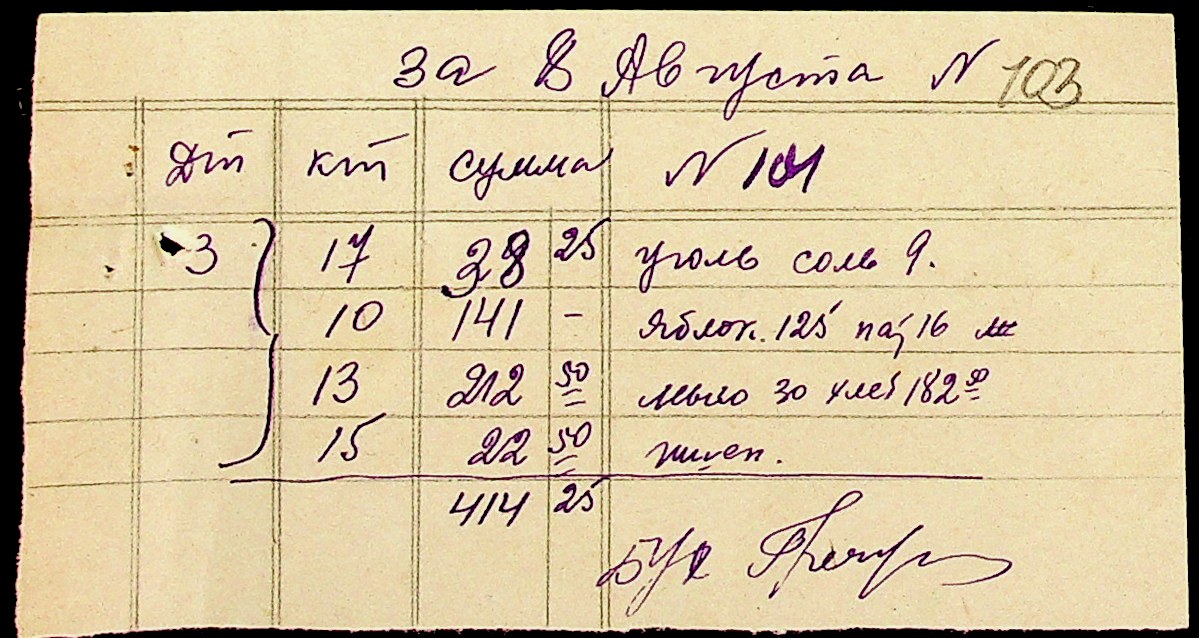 за 8 Августа N 103
Дт Кт сумма N 101
3 17 38 25 уголь соль 9.
10 141 - яблок. 125 16
13 212 50 мыло 30 клей 182 50
15 22 50
414 25
Бух